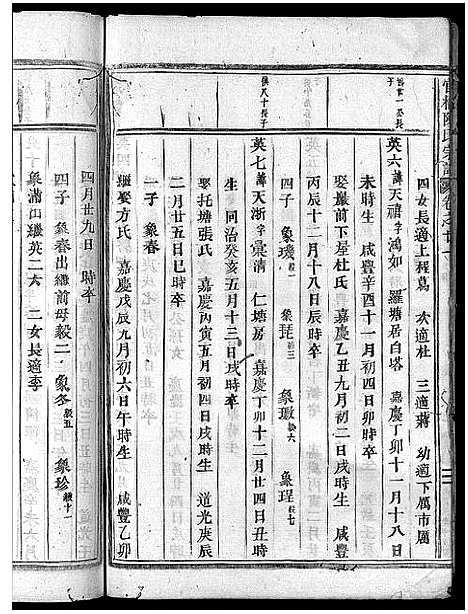 四女長適上程葛 次適杜 三適蔣 幼適下厲市厲
英六 諱天禧字鴻如 羅塘居白塔 嘉慶丁卯十一月十八日
未時生 咸豐辛酉十一月初四日戌時卒
娶廟前上屋杜氏 嘉慶乙丑九月初二日戌時生 咸豐
丙辰十二月十八日辰時卒
四子 象璣 象琵 象璈 象瑆
英七 諱天淅字彙清 仁塘房 嘉慶丁卯十二月廿四日丑時
生 同治癸亥五月十三日戌時卒
娶托塘張氏 嘉慶丙寅五月初四日戌時生 道光庚辰
二月廿五日巳時卒
一子 象春
繼娶方氏 嘉慶戊辰九月初六日午時生 咸豐乙卯
四月廿九日 時卒
四子 象春出繼前母毅二 象冬毅五 象珍毅十一
象滿出繼英二六 二女長適李